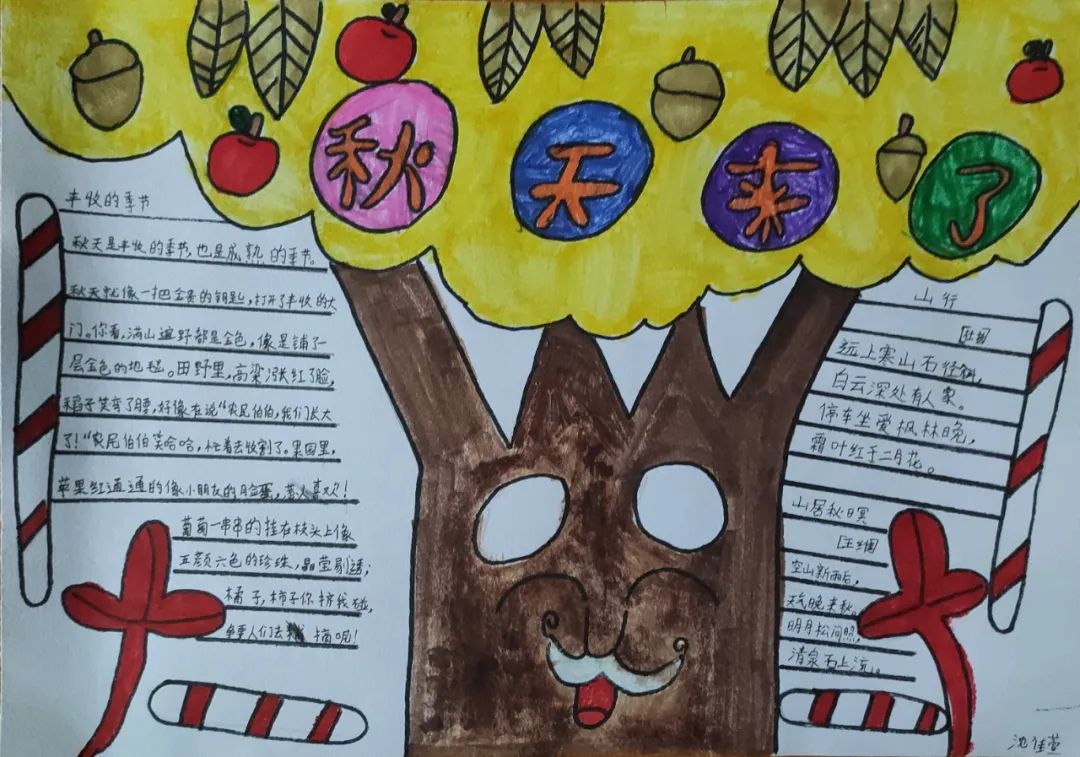 秋天来了
丰收的季节
秋天是丰收的季节,也是成熟的季节。
秋天就像一把金黄的钥匙,打开了丰收的大
门。你看,满山遍野都是金色,像是铺了一
层金色的地毯。田野里,高粱涨红了脸,
稻子笑弯了腰,好像在说“农民伯伯,我们长大
了!”农民伯伯笑哈哈,忙着去收割了。果园里,
苹果红通通的像小朋友的脸蛋,惹人喜欢!
葡萄一串串的挂在枝头上像
五颜六色的珍珠,晶莹剔透;
橘子,柿子你挤我碰,
争要人们去摘呢!
山行
[杜牧]
远上寒山石径斜,
白云深处有人家。
停车坐爱枫林晚,
霜叶红于二月花。
山居秋暝
[王维]
空山新雨后,
天气晚来秋。
明月松间照,
清泉石上流。
沈佳萱